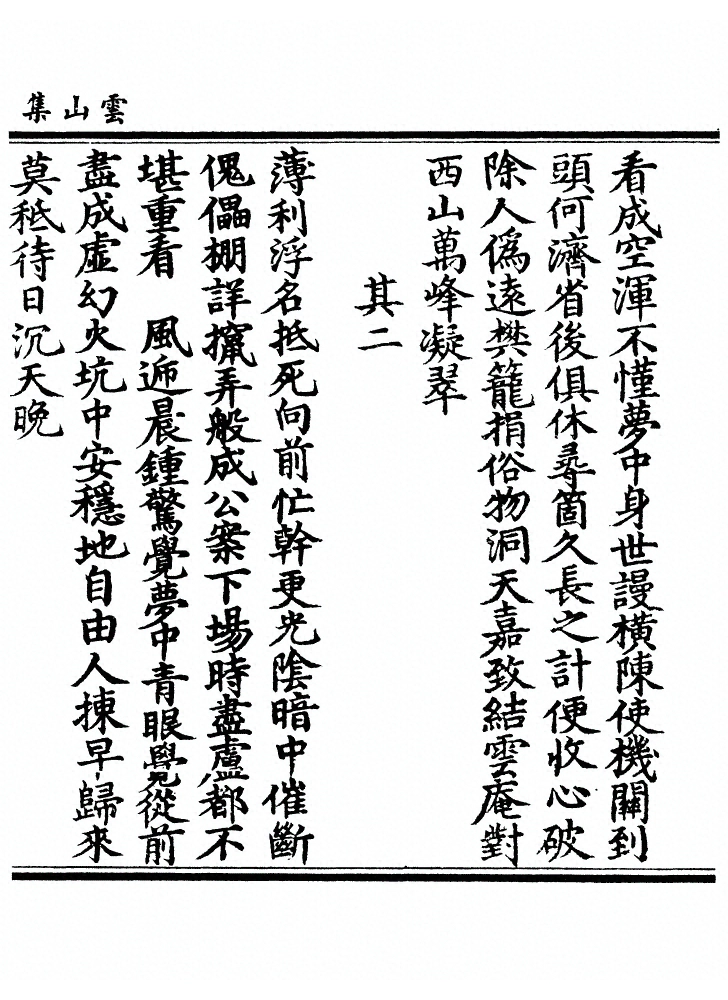 雲山集
看成空渾不懂夢中身世謾橫陳使機關到
頭何濟省後俱休尋箇久長之計便收心破
除人僞遠樊籠捐俗物洞天嘉致結雲庵對
西山萬峰凝翠
其二
薄利浮名抵死向前忙幹更光陰暗中催斷
傀儡棚詳攛弄般成公案下場時盡盧都不
堪重看　風遞晨鍾驚覺夢中青眼覺從前
盡成虛幻火坑中安穩地自由人揀早歸來
莫秪待日沉天晚